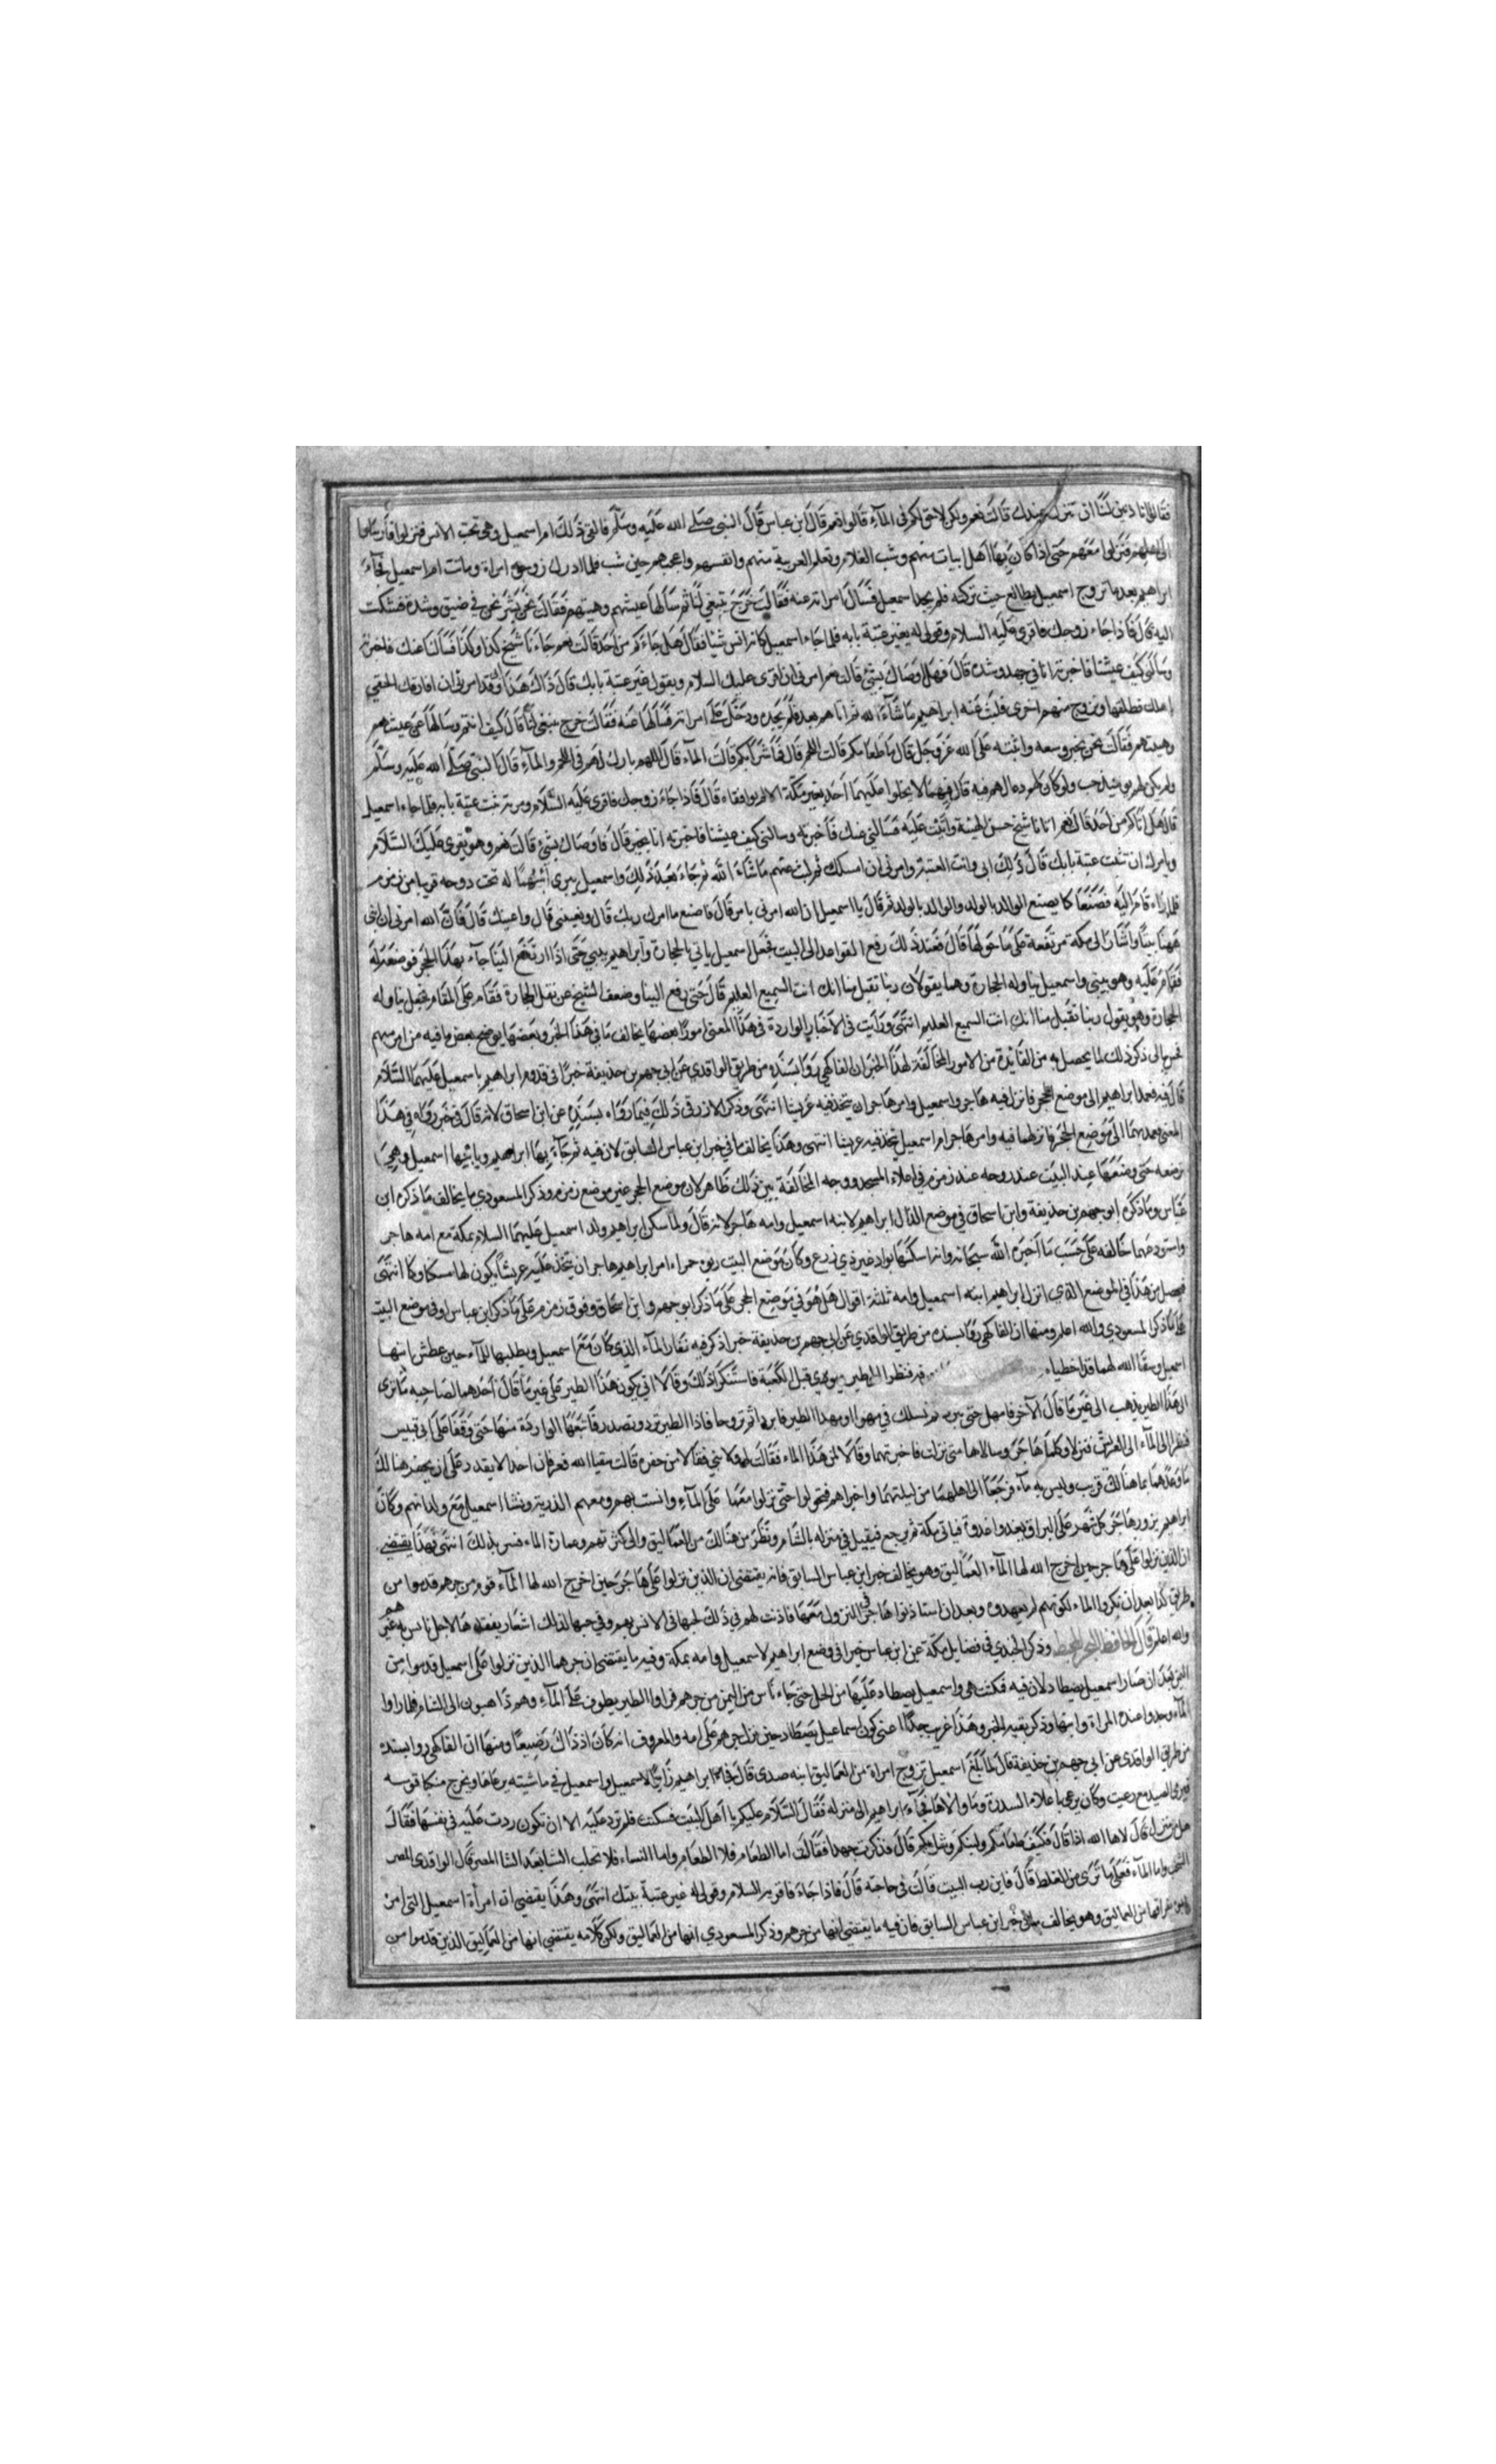 فقالوا اتاذنين لنا ان ننزل عندك قالت نعم ولكن لا حق لكم في المآء قالوا نعم قال ابن عباس قال النبي صلى الله عليه وسلم فالفى ذلك ام اسمعيل وهي تحب الانس فنزلوا فارسلوا
الى اهليهم فنزلوا معهم حتى اذا كان بها اهل ابيات منهم وشب الغلام وتعلم العربية منهم وانفسهم واعجبهم حين شب فلما ادرك زوجوه امراة وماتت ام اسمعيل فجآء
ابراهيم بعد ما تزوج اسمعيل يطالع حيث تركته فلم يجد اسمعيل فسال امراته عنه فقالت خرج يبتغي لنا ثم سالها عيشهم وهيئتهم فقالت نحن بشر نحن في ضيق وشدة فشكت
اليه قال فاذا جاء زوجك فاقري عليه السلام وقولي له يغير عتبة بابه فلما جاء اسمعيل كانه انس شيئا فقال هل جاءكم من احد قالت نعم جاءنا شيخ كذا وكذا فسالنا عنك فاخبرته
وسالني كيف عيشنا فاخبرته انا في جهد وشدة قال فهل اوصاك بشئ قالت نعم امرني ان اقرى عليك السلام ويقول غير عتبة بابك قال ذاك هذا وقد امرني ان افارقك الحقي
باهلك فطلقها وتزوج منهم اخرى فلبث عنه ابراهيم ما شآء الله ثم اتاهم بعد فلم يجده ودخل على امراته فسالها عنه فقالت خرج يبتغي لنا قال كيف انتم وسالها عن عيشهم
وهيئتهم فقالت نحن بخير وسعه واثنت على الله عز وجل قال ما طعامكم قالت اللحم قال فما شرابكم قالت المآء قال اللهم بارك لهم في اللحم والمآء قال النبي صلى الله عليه وسلم
ولم يكن لهم يومئذ حب ولو كان لهم دعا لهم فيه قال فهما لا يخلوا عليهما احد بغير مكة الا لم يوافقاه قال فاذا جاء زوجك فاقري عليه السلام ومريه يثبت عتبة بابه فلما جاء اسمعيل
قال هل اتاكم من احد قالت نعم اتانا شيخ حسن الهيئة واثنت عليه فسالني عنك فاخبرته وسالني كيف عيشنا فاخبرته انا بخير قال فاوصاك بشئ قالت نعم وهو يقري عليك السلام
ويامرك ان تثبت عتبة بابك قال ذلك ابي وانت العتبة وامرني ان امسكك ثم لبث عنهم ما شآء الله ثم جاء بعد ذلك واسمعيل يبري نبلا له تحت دوحه قريبا من زمزم
فلما راه قام اليه فصنعا كما يصنع الوالد بالولد والولد بالوالد ثم قال يا اسمعيل ان الله امرني بامر قال فاصنع ما امرك ربك قال وتعينني قال واعينك قال فان الله امرني ان ابني
ههنا بيتا واشار الى اكمة مرتفعة على ما حولها قال فعند ذلك رفع القواعد الى البيت فجعل اسمعيل ياتي بالحجارة وابراهيم يبني حتى اذا ارتفع البنا جآء بهذا الحجر فوضعه له
فقام عليه وهو يبني واسمعيل يناوله الحجارة وهما يقولان ربنا تقبل منا انك انت السميع العليم قال حتى رفع البنا وضعف الشيخ عن نقل الحجارة فقام على المقام فجعل يناوله
الحجارة وهو يقول ربنا تقبل منا انك انت السميع العليم انتهى ورايت في الاخبار الواردة في هذا المعنى امورا بعضها يخالف ما في هذا الخبر وبعضها يوضح بعض ما فيه من امر مبهم
فحسن الى ذكر ذلك لما يحصل به من الفائدة من الامور المخالفة لهذا الخبر ان الفاكهي روى بسنده من طريق الواقدي عن ابي جهم بن حذيفة خبرا في قدوم ابراهيم باسمعيل عليهما السلام
قال فيه فعمد ابراهيم الى موضع الحجر فانزل فيه هاجر واسمعيل وامر هاجر ان تتخذ فيه عريشا انتهى وذكر الازرقي ذلك فيما رواه بسنده عن ابن اسحاق لانه قال في خبر رواه في هذا
المعنى فعمد بهما الى موضع الحجر فانزلهما فيه وامر هاجر ام اسمعيل تتخذ فيه عريشا انتهى وهذا يخالف ما في خبر ابن عباس السابق لان فيه ثم جآء بها ابراهيم وبابنها اسمعيل وهي
ترضعه حتى وضعها عند البيت عند دوحه عند زمزم في اعلاء المسجد ووجه المخالفة بين ذلك ظاهر لان موضع الحجر غير موضع زمزم وذكر المسعودي ما يخالف ما ذكره ابن
عباس وما ذكره ابو جهم بن حذيفة وابن اسحاق في موضع انزال ابراهيم لابنه اسمعيل وامه هاجر لانه قال ولما سكن ابراهيم ولد اسمعيل عليهما السلام بمكة مع امه هاجر
واستودعهما خالقه على حسب ما اخبره الله سبحانه وانه اسكنها بواد غير ذي زرع وكان موضع البيت ربوة حمراء امر ابراهيم هاجر ان تتخذ عليه عريشا يكون لها مسكنا وكنا انتهى
فيحصل من هذا في الموضع الذي انزل ابراهيم ابنه اسمعيل وامه ثلثة اقوال هل هو في موضع الحجر على ما ذكر ابو جهم وابن اسحاق وفوق زمزم على ما ذكر ابن عباس او في موضع البيت
على ما ذكر المسعودي والله اعلم ومنها ان الفاكهي روى بسنده من طريق الواقدي عن ابي جهم بن حذيفة خبرا ذكر فيه نفاد المآء الذي كان مع اسمعيل وبطلبها للمآء حين عطش ابنها
اسمعيل وسقا الله لهما فنظرا الى طير يهوي قبل الكعبة فاستنكرا ذلك وقالا انى يكون هذا الطير على غير ما قال احدهما لصاحبه ما ترى
ان هذا الطير يذهب الى غير ما قال الآخر فامهل حتى نبرد ثم نسلك في مهوا مهبد الطير فابردا ثم تروحا فاذا الطير ترد وتصدر فاتبعا الواردة منها حتى وقفا على ابي قبيس
فنظرا الى المآء الى العريش فنزلا وكلما هاجر وسالاها متى نزلت فاخبرتهما وقالا لمن هذا الماء فقالت لي ولابني فقالا من حفره قالت سقيا الله فعرفا ان احدا لا يقدر على ان يحفر هنالك
ماء وعهدهما بما هنالك قريب وليس به مآء فرجعا الى اهلهما من ليلتهما واخبراهم فتحولوا حتى نزلوا معها على المآء وانست بهم ومعهم الذرية ونشا اسمعيل مع ولدانهم وكان
ابراهيم يزور هاجر كل شهر على البراق يغدوا غدوة فياتي مكة ثم يرجع فيقيل في منزله بالشام ونظر من هنالك من العماليق والى كثرتهم وعمارة الماء فسر بذلك انتهى وهذا يقتضي
ان الذين نزلوا على هاجر حين اخرج الله لها المآء العماليق وهو يخالف خبر ابن عباس السابق فانه يقتضي ان الذين نزلوا على هاجر حين اخرج الله لها المآء قوم من جرهم قدموا من
طريق كدا بعد ان نكروا الماء لكونهم لم يعهدوه وبعد ان استاذنوا هاجر في النزول معها فاذنت لهم في ذلك لحبها في الانس بهم وفي حبها لذلك اشعار بفقدها لاجل ناس به غيرهم
والله اعلم قال الحافظ وذكر الجندي في فضايل مكة عن ابن عباس خبرا في وضع ابراهيم لاسمعيل وامه بمكة وفيه ما يقتضي ان جرهما الذين نزلوا على اسمعيل قدموا من
اليمن بعد ان صار اسمعيل يصطاد لان فيه فمكثت هي واسمعيل يصطاد عليها من الحل حتى جاء ناس من اليمن من جرهم فراوا الطير يطوف على المآء وهم ذاهبون الى الشام فلما راوا
المآء وجدوا عنده المراة وابنها وذكر بقيه الخبر وهذا غريب جدا اعني كون اسماعيل يصطاد حين نزل جرهم على امه والمعروف انه كان اذ ذاك رضيعا ومنها ان الفاكهي روى بسنده
من طريق الواقدي عن ابي جهم بن حذيفة قال لما بلغ اسمعيل تزوج امراة من العماليق ابنه صدى قال فجآء ابراهيم زائرا لاسمعيل واسمعيل في ماشيته يرعاها ويخرج متنكبا قوسه
فيرمي الصيد مع رعيت وكان يرعى باعلاء السدرة وما والاها فجآء ابراهيم الى منزله فقال السلام عليكم يا اهل البيت فسكتت فلم ترد عليه الا ان تكون ردت عليه في نفسها فقال
هل من منزل قالت لاها الله اذا قال فكيف طعامكم ولبنكم وشرابكم قال فذكرت جهدا فقالت اما الطعام فلا طعام واما النساء فلا تحلب الشا بعد الشا المصر قال الواقدي المصر
الشخب واما المآء فعلى ما ترى من الغلظ قال فاين رب البيت قالت في حاجته قال فاذا جاء فاقريه السلام وقولي له غير عتبة بيتك انتهى وهذا يقتضي ان امرأة اسمعيل التي امره
بفراقها من العماليق وهو يخالف خبر ابن عباس السابق فان فيه ما يقتضي انها من جرهم وذكر المسعودي انها من العماليق ولكن كلامه يقتضي انها من العماليق الذين قدموا من